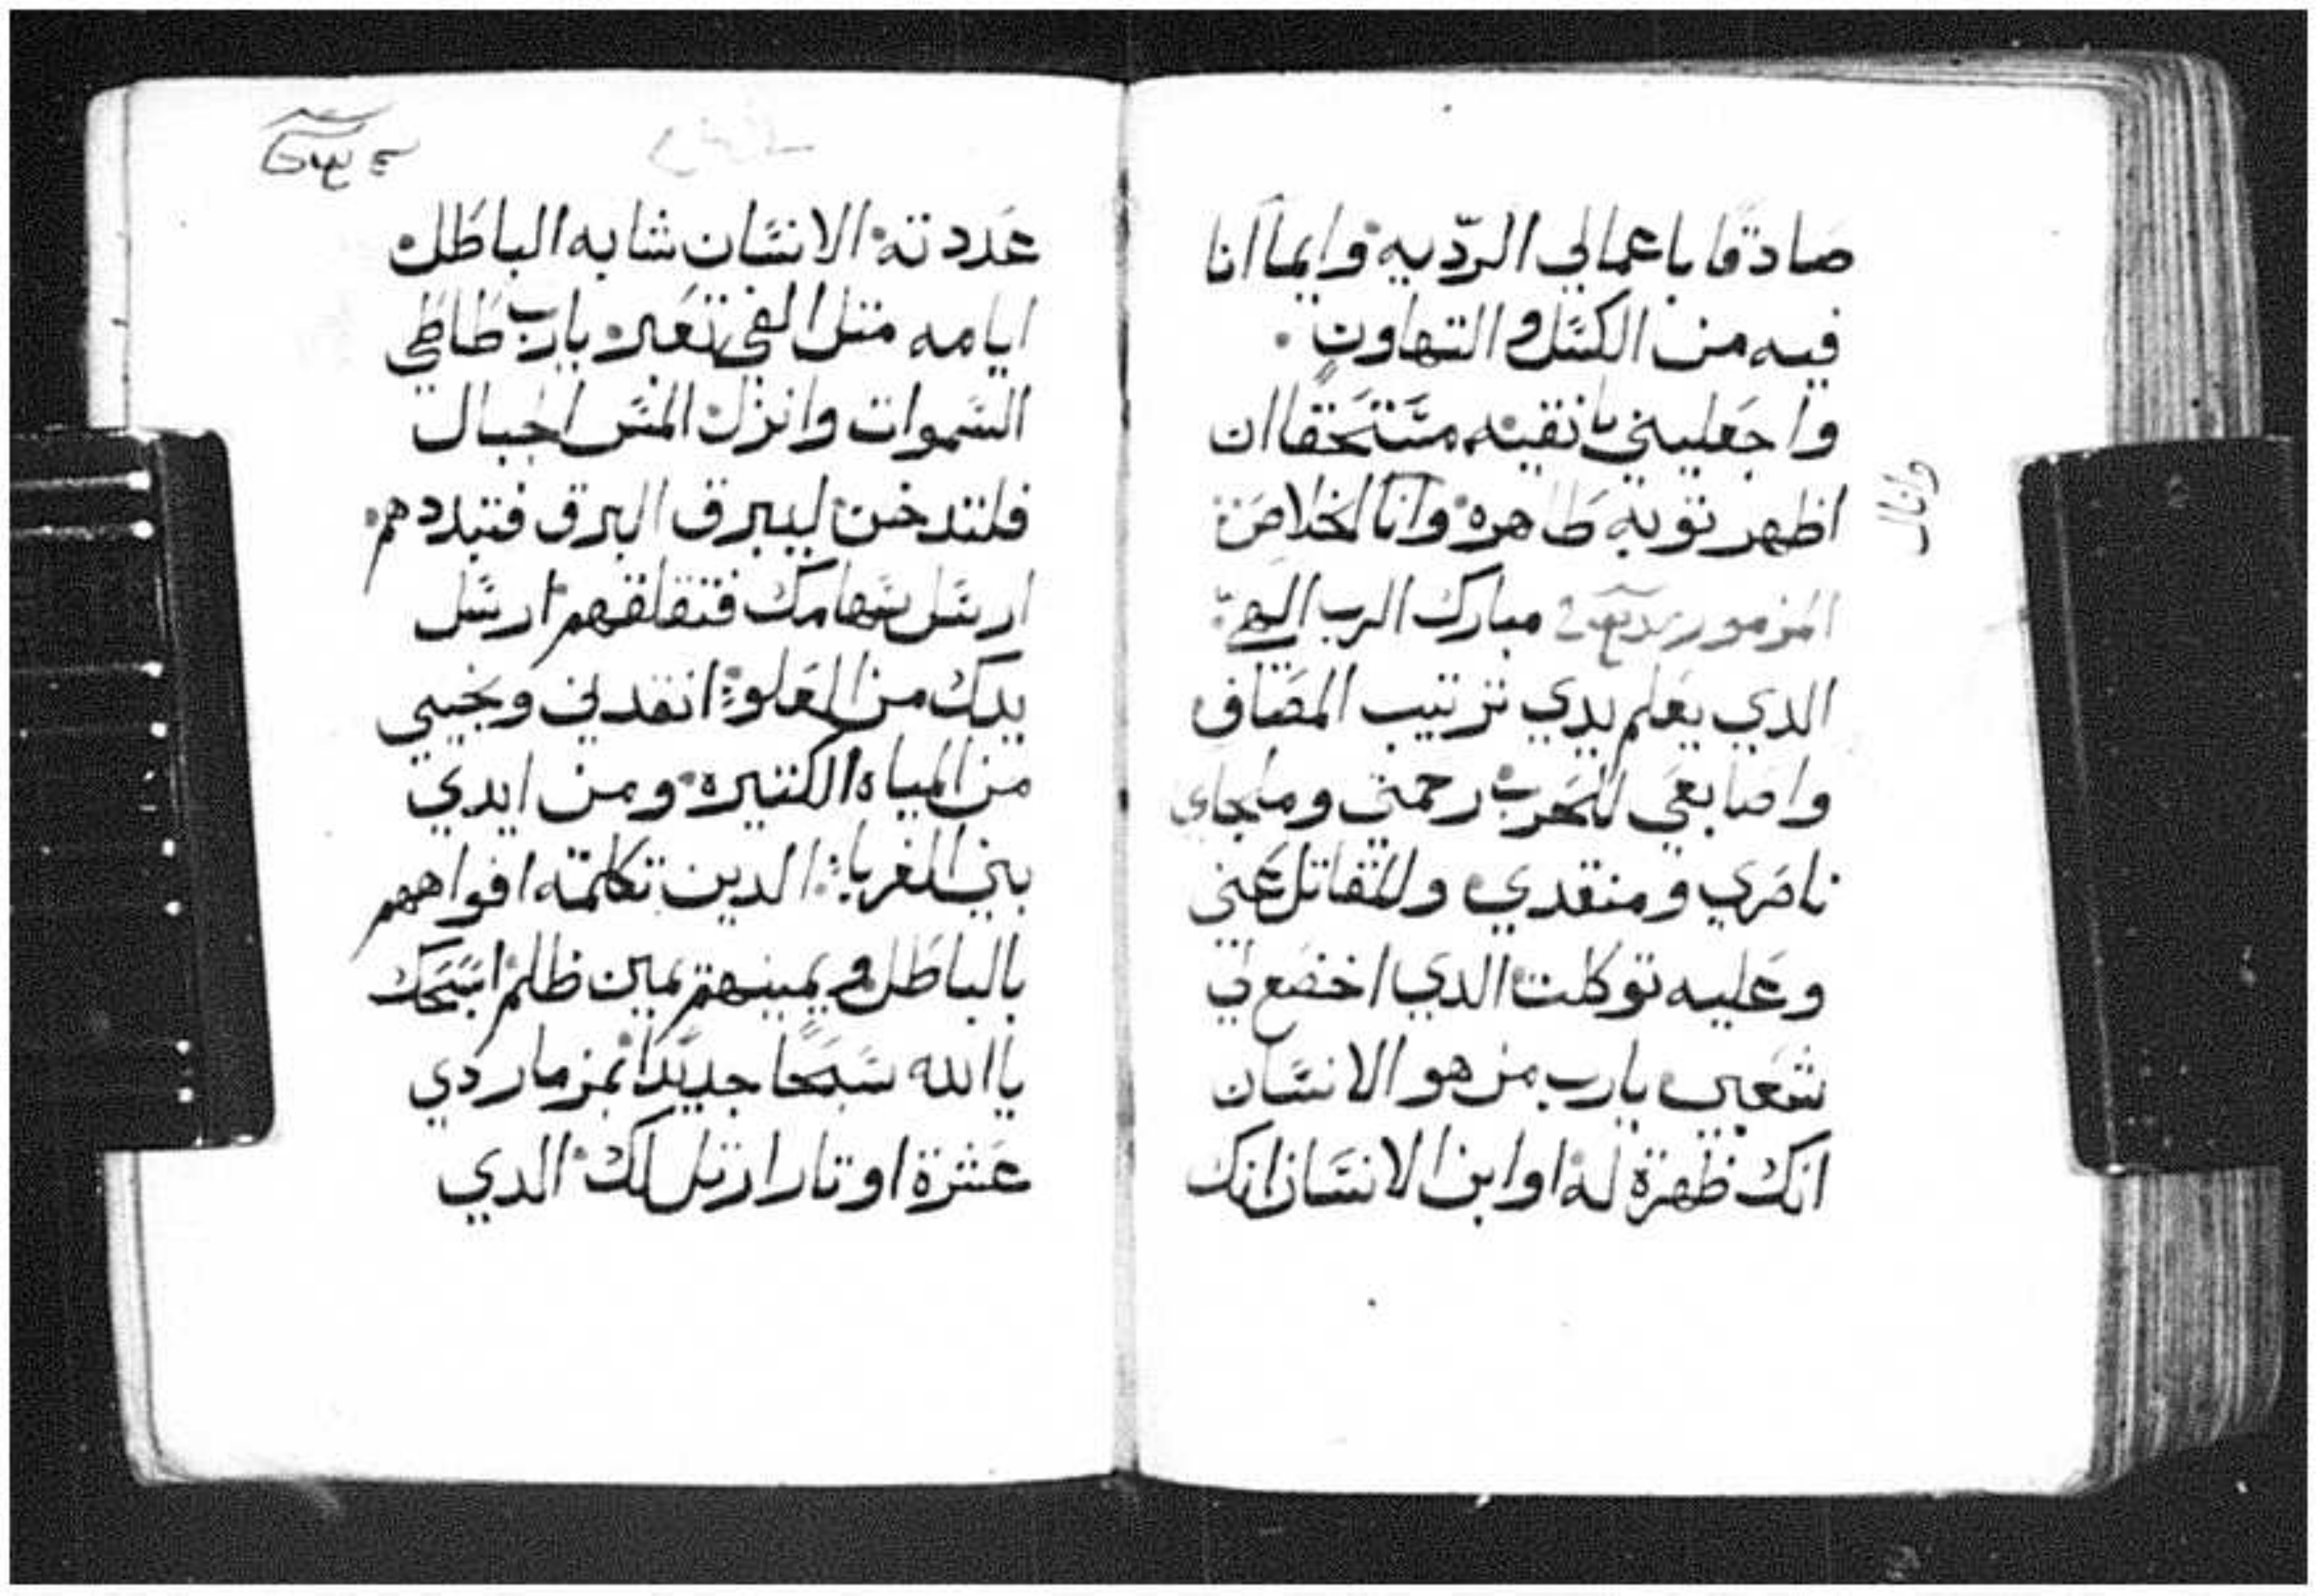 صادقا باعمالي الرديه وايما انا
فيه من الكسل والتهاون
واجعليني يا نقيه مستحقا ان
اظهر توبه طاهره وانا الخلاص
وانال
المزمور مبارك الرب الهي
الدي يعلم يدي ترتيب المصاف
واصابعي للحرب رحمتي وملجاي
ناصري ومنقدي والمقاتل عني
وعليه توكلت الدي اخضع لي
شعبي يارب من هو الانسان
انك ظهرة له او ابن الانسان انك
عددته الانسان شابه الباطل
ايامه متل الفي تعبر يارب طاطي
السموات وانزل المس الجبال
فلتدخن ليبرق البرق فتبددهم
ارسل سهامك فتقلقهم ارسل
يدك من العلو انقدني ونجيني
من المياه الكتيره ومن ايدي
بني الغربا الدين تكلمة افواههم
بالباطل ويمينهم يمين ظلم اسبحك
يا الله سبحا جديدا بمزمار دي
عشرة اوتار ارتل لك الدي